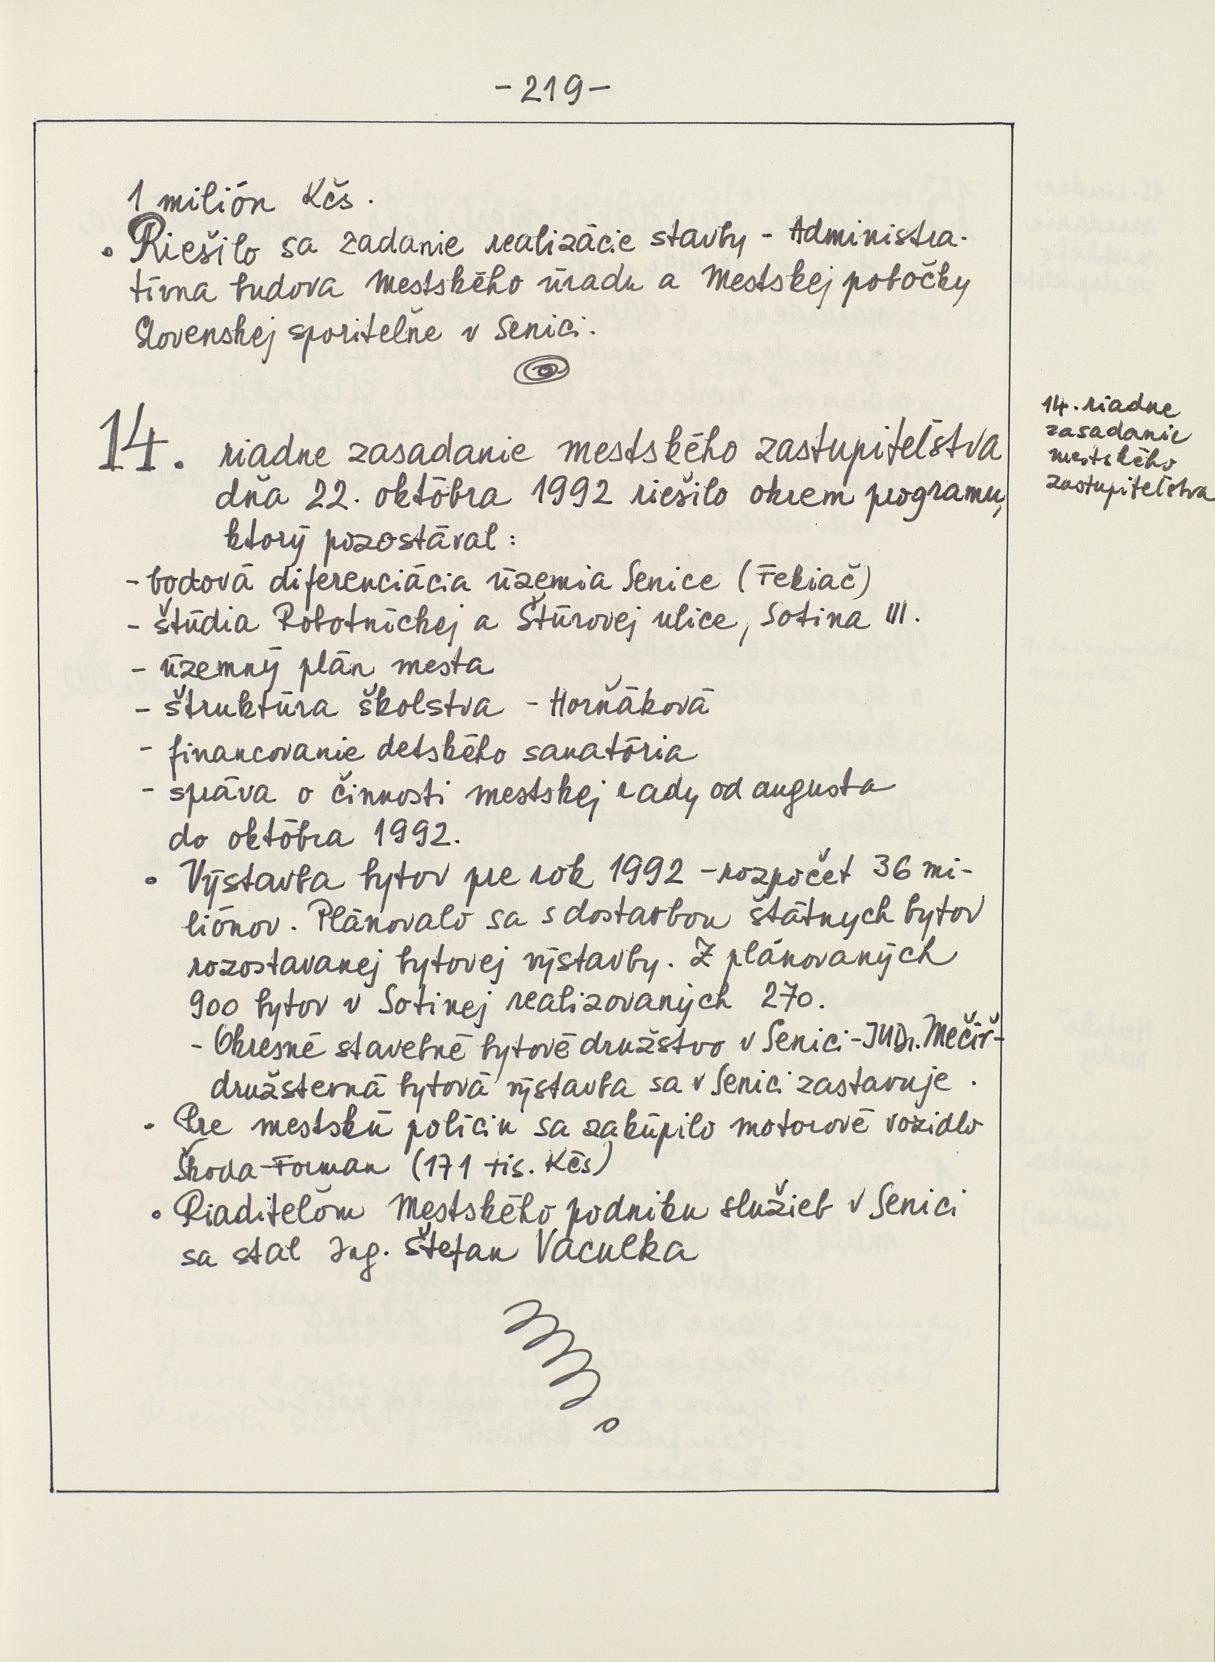 -219-
1 milión Kčs.
• Riešilo sa zadanie realizácie stavby - Administra-
tívna budova Mestského úradu a Mestskej pobočky
Slovenskej sporiteľne v Senici.
14. riadne zasadanie mestského zastupiteľstva
dňa 22. októbra 1992 riešilo okrem programu,
ktorý pozostával:
- bodová diferenciácia územia Senice (Fekiač)
- štúdia Robotníckej a Štúrovej ulice, Sotina III.
- územný plán mesta
- štruktúra školstva - Horňáková
- financovanie detského sanatória
- správa o činnosti mestskej rady od augusta
do októbra 1992.
• Výstavba bytov pre rok 1992 - rozpočet 36 mi-
liónov. Plánovalo sa s dostavbou štátnych bytov
rozostavanej bytovej výstavby. Z plánovaných
900 bytov v Sotinej realizovaných 270.
- Okresné stavebné bytové družstvo v Senici - JUDr. Mečíř -
družstevná bytová výstavba sa v Senici zastavuje.
• Pre mestskú políciu sa zakúpilo motorové vozidlo
Škoda-Forman (171 tis. Kčs)
• Riaditeľom Mestského podniku služieb v Senici
sa stal Ing. Štefan Vaculka
14. riadne
zasadanie
mestského
zastupiteľstva